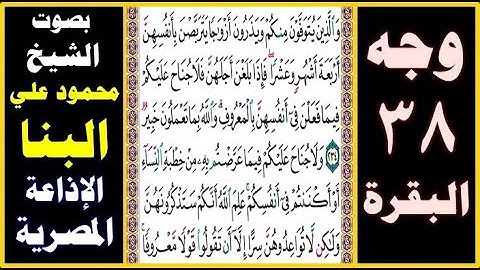 وجه
٣٨
البقرة
وَالَّذِينَ يُتَوَفَّوْنَ مِنكُمْ وَيَذَرُونَ أَزْوَاجًا يَتَرَبَّصْنَ بِأَنفُسِهِنَّ
أَرْبَعَةَ أَشْهُرٍ وَعَشْرًا ۖ فَإِذَا بَلَغْنَ أَجَلَهُنَّ فَلَا جُنَاحَ عَلَيْكُمْ
فِيمَا فَعَلْنَ فِي أَنفُسِهِنَّ بِالْمَعْرُوفِ ۗ وَاللَّهُ بِمَا تَعْمَلُونَ خَبِيرٌ
٢٣٤ وَلَا جُنَاحَ عَلَيْكُمْ فِيمَا عَرَّضْتُم بِهِ مِنْ خِطْبَةِ النِّسَاءِ
أَوْ أَكْنَنتُمْ فِي أَنفُسِكُمْ ۚ عَلِمَ اللَّهُ أَنَّكُمْ سَتَذْكُرُونَهُنَّ
وَلَٰكِن لَّا تُوَاعِدُوهُنَّ سِرًّا إِلَّا أَن تَقُولُوا قَوْلًا مَّعْرُوفًا ۚ
بصوت
الشيخ
محمود علي
البنا
الإذاعة
المصرية